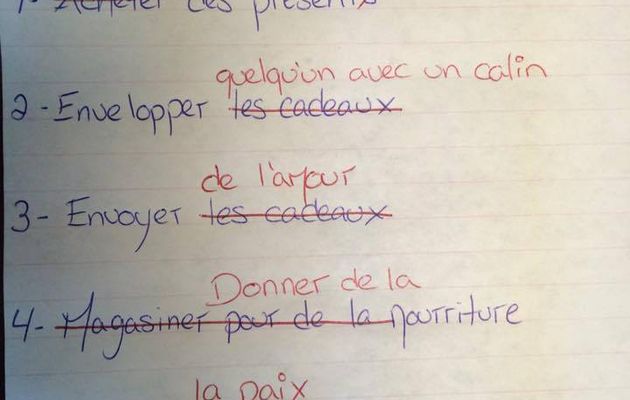 1- Acheter des présents
quelqu'un avec un calin
2 - Envelopper les cadeaux
de l'amour
3 - Envoyer les cadeaux
Donner de la
4 - Magasiner pour de la nourriture
la paix